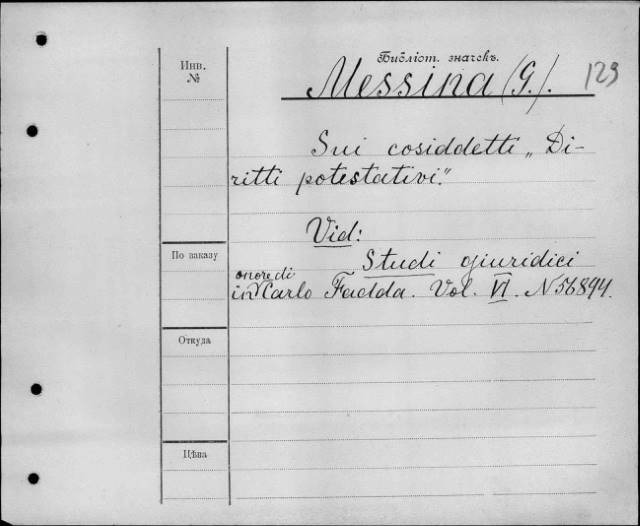 Инв.
№
Библіот. значекъ.
Messina (G.). 123
Sui cosiddetti „Di-
ritti potestativi."
Vid:
По заказу
Studi giuridici
onore di
in Carlo Fadda. Vol. VI. N 56894.
Откуда
Цѣна